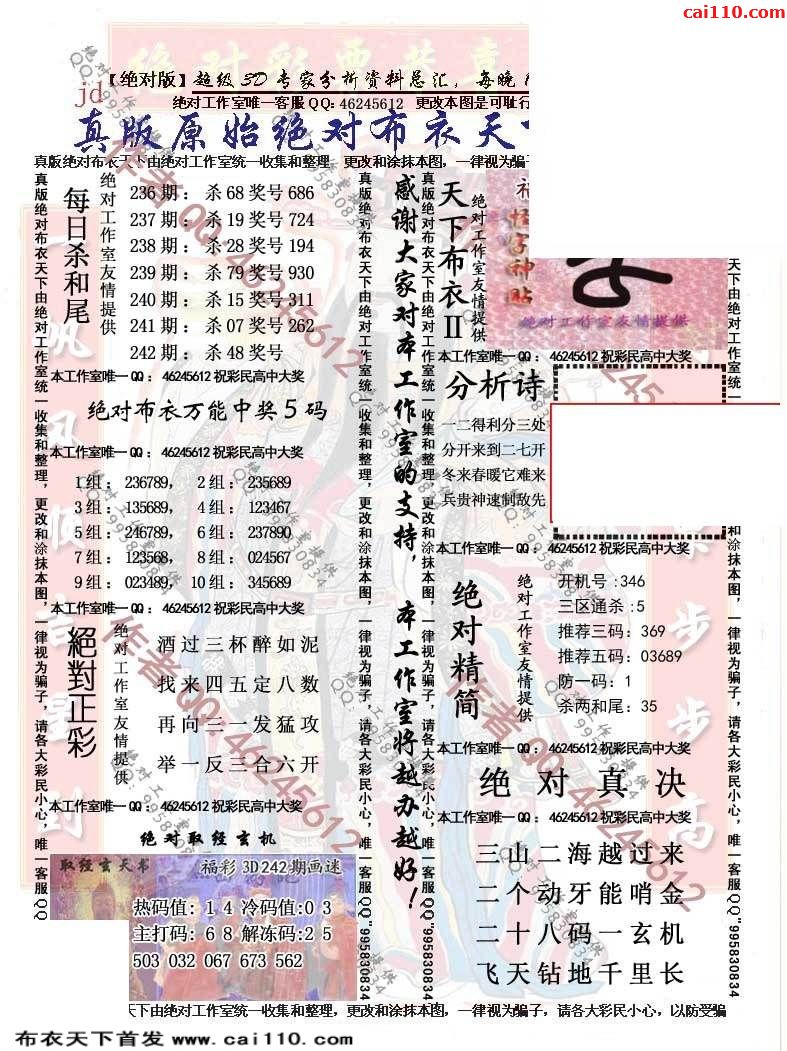 cai110.com
【绝对版】超级3D专家分析资料总汇，每晚
jd
绝对工作室唯一客服QQ：46245612 更改本图是可耻行
真版原始绝对布衣天
真版绝对布衣天下由绝对工作室统一收集和整理，更改和涂抹本图，一律视为骗
真版绝对布衣天下由绝对工作室统一收集和整理，更改和涂抹本图，一律视为骗子，请各大彩民小心，唯一客服QQ
每日杀和尾
绝对工作室友情提供
236期：杀68奖号686
237期：杀19奖号724
238期：杀28奖号194
239期：杀79奖号930
240期：杀15奖号311
241期：杀07奖号262
242期：杀48奖号
本工作室唯一QQ：46245612祝彩民高中大奖
绝对布衣万能中奖5码
本工作室唯一QQ：46245612祝彩民高中大奖
1组：236789， 2组：235689
3组：135689， 4组：123467
5组：246789， 6组：237890
7组：123568， 8组：024567
9组：023489， 10组：345689
本工作室唯一QQ：46245612祝彩民高中大奖
絕對正彩
绝对工作室友情提供
酒过三杯醉如泥
找来四五定八数
再向三一发猛攻
举一反三合六开
本工作室唯一QQ：46245612祝彩民高中大奖
绝对取经玄机
取经玄天书 福彩3D242期画迷
热码值：14冷码值:03
主打码：68解冻码:25
503 032 067 673 562
真版绝对布衣天下由绝对工作室统一收集和整理，更改和涂抹本图，一律视为骗子，请各大彩民小心，唯一客服QQ"995830834
感谢大家对本工作室的支持，本工作室将越办越好！
真版绝对布衣天下由绝对工作室统一收集和整理，更改和涂抹本图，一律视为骗子，请各大彩民小心，唯一客服QQ"995830834
天下布衣II
绝对工作室友情提供
怪字神贴
绝对工作室友情提供
本工作室唯一QQ：46245612祝彩民高中大奖
分析诗
一二得利分三处
分开来到二七开
冬来春暖它难来
兵贵神速制敌先
本工作室唯一QQ：46245612祝彩民高中大奖
绝对精简
绝对工作室友情提供
开机号:346
三区通杀:5
推荐三码:369
推荐五码:03689
防一码:1
杀两和尾:35
本工作室唯一QQ：46245612祝彩民高中大奖
绝对真决
本工作室唯一QQ：46245612祝彩民高中大奖
三山二海越过来
二个动牙能哨金
二十八码一玄机
飞天钻地千里长
天下由绝对工作室统一
和涂抹本图，一律视为骗子，请各大彩民小心，唯一客服QQ"995830834
步步高
作者QQ:46245612
天下由绝对工作室统一收集和整理，更改和涂抹本图，一律视为骗子，请各大彩民小心，以防受骗
布衣天下首发 www.cai110.com